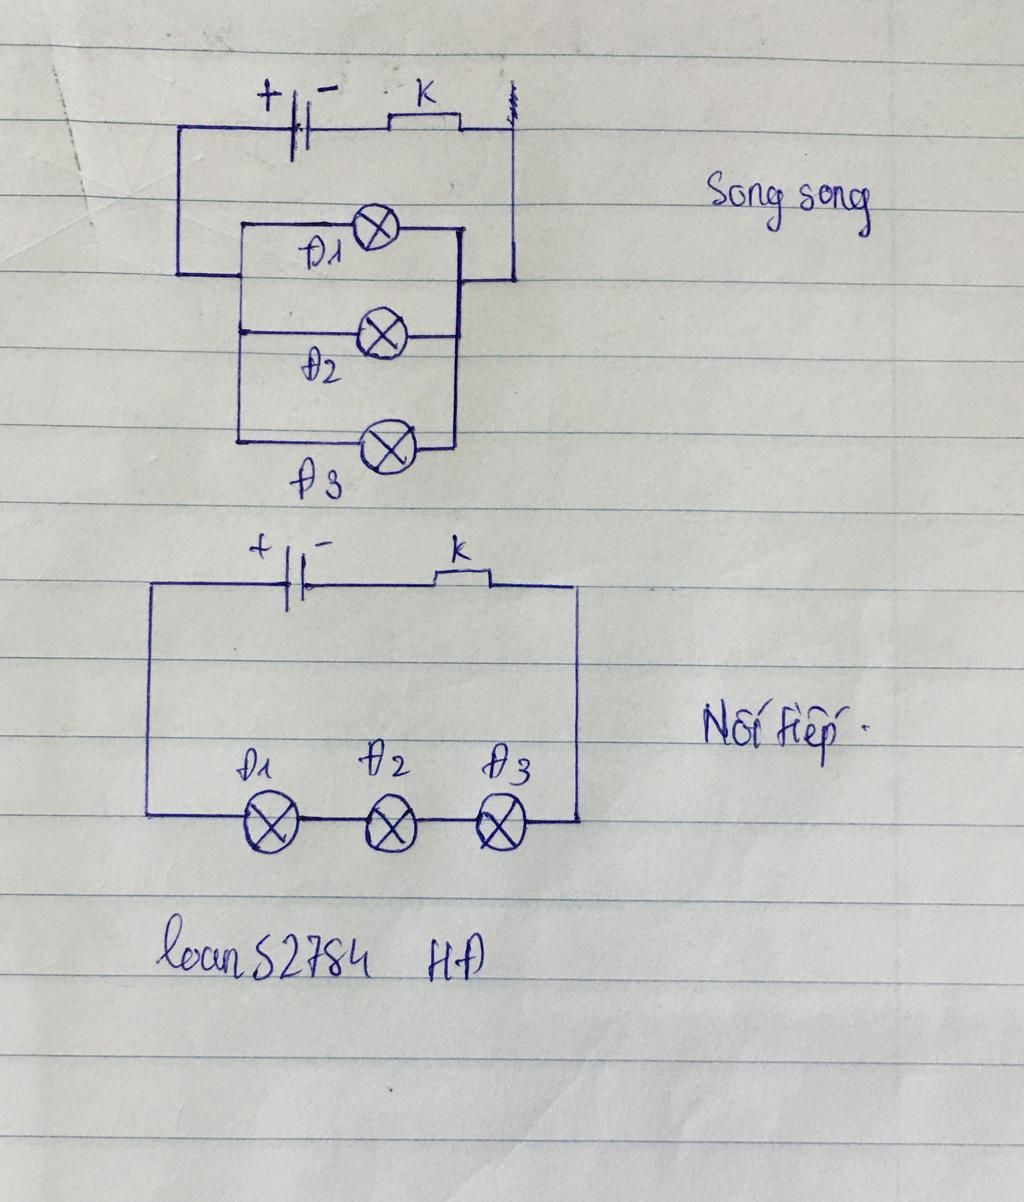 + - K
Song song
Đ1
Đ2
Đ3
+ - K
Nối tiếp.
Đ1 Đ2 Đ3
loan52784 HĐ